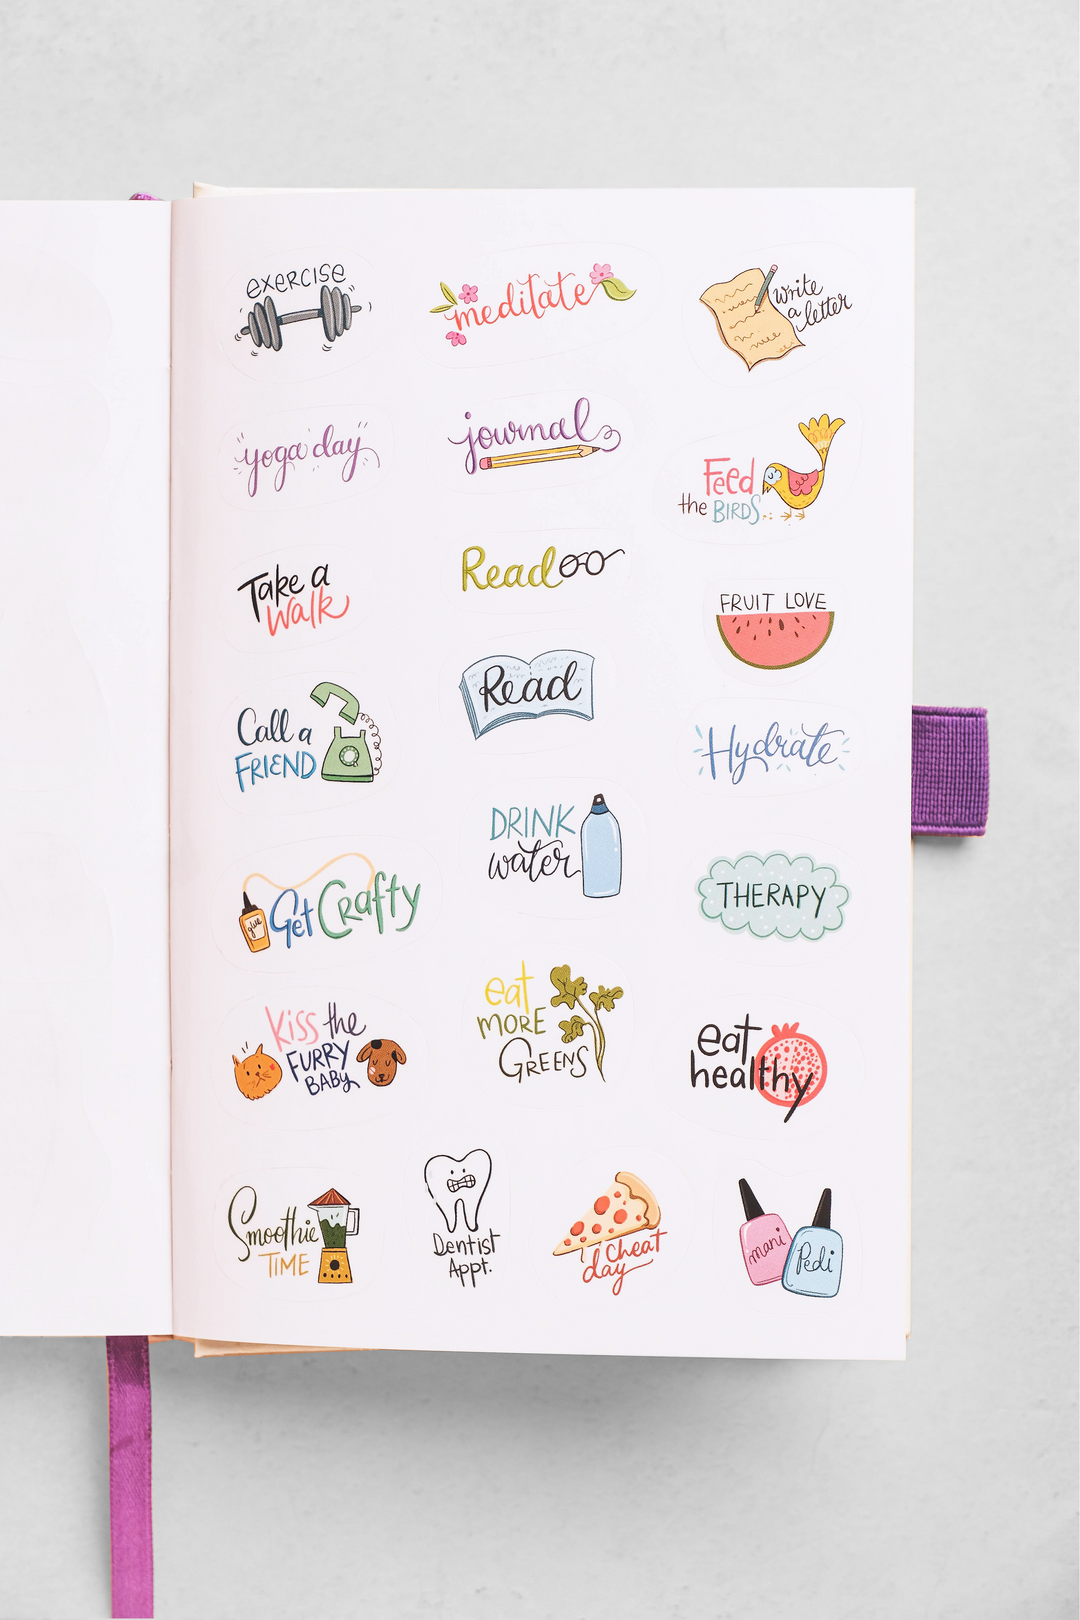 exercise
meditate
write
a
letter
yoga day
journal
Feed
the BIRDS
Take a
Walk
Read
FRUIT LOVE
Call a
FRIEND
Read
Hydrate
DRINK
water
THERAPY
glue
Get Crafty
eat
MORE
GREENS
Kiss the
FURRY
BABY
eat
healthy
Smoothie
TIME
Dentist
Appt.
Cheat
day
mani
Pedi